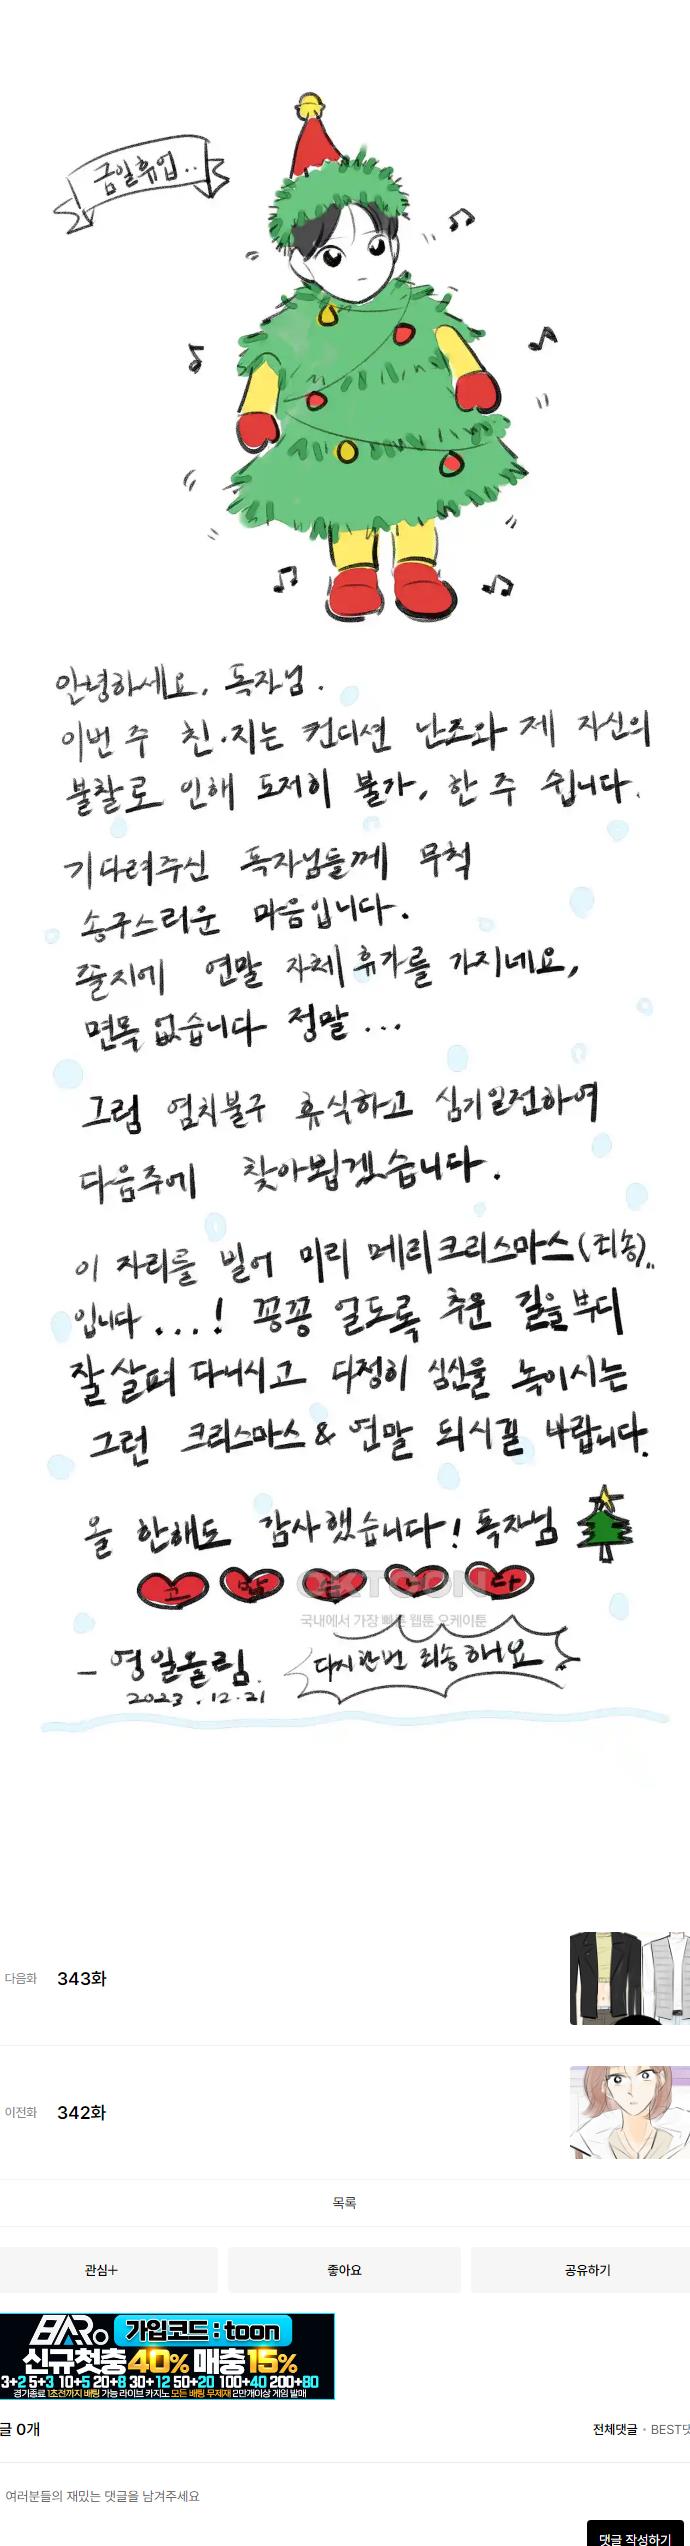 금일휴업..
안녕하세요, 독자님.
이번 주 친.지는 컨디션 난조와 제 자신의
불찰로 인해 도저히 불가, 한 주 쉽니다.
기다려주신 독자님들께 무척
송구스러운 마음입니다.
졸지에 연말 자체 휴가를 가지네요,
면목 없습니다 정말 ...
그럼 염치불구 휴식하고 심기일전하여
다음주에 찾아뵙겠습니다.
이 자리를 빌어 미리 메리크리스마스(죄송)..
입니다 ...! 꽁꽁 얼도록 추운 길을 부디
잘 살펴 다니시고 다정히 심신을 녹이시는
그런 크리스마스 & 연말 되시길 바랍니다.
올 한해도 감사했습니다! 독자님
고 맙 다
OKTOON
국내에서 가장 빠른 웹툰 오케이툰
- 영일올림.
2023.12.21
다시한번 죄송해요
다음화 343화
이전화 342화
목록
관심+ 좋아요 공유하기
BARO 가입코드 : toon
신규첫충40% 매충15%
3+2 5+3 10+5 20+8 30+12 50+20 100+40 200+80
경기종료 1초전까지 배팅 가능 라이브 카지노 모든 배팅 무제재 2만개이상 게임 발매
글 0개 전체댓글 • BEST댓
여러분들의 재밌는 댓글을 남겨주세요
댓글 작성하기